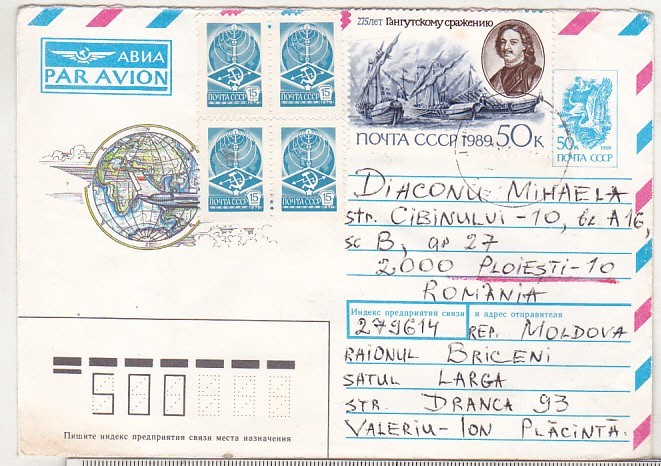 АВИА
PAR AVION
15 К
ПОЧТА СССР
15 К
ПОЧТА СССР
15 К
ПОЧТА СССР
15 К
ПОЧТА СССР
275 лет Гангутскому сражению
ПОЧТА СССР 1989 50 к
50 к 1988
ПОЧТА СССР
DIACONU MIHAELA
str. CIBINULUI - 10, bl A16,
sc B, ap 27
2000 PLOIEȘTI - 10
ROMÂNIA
Индекс предприятия связи и адрес отправителя
279614 REP. MOLDOVA
RAIONUL BRICENI
SATUL LARGA
STR. DRANCA 93
VALERIU-ION PLĂCINTĂ.
500
Пишите индекс предприятия связи места назначения